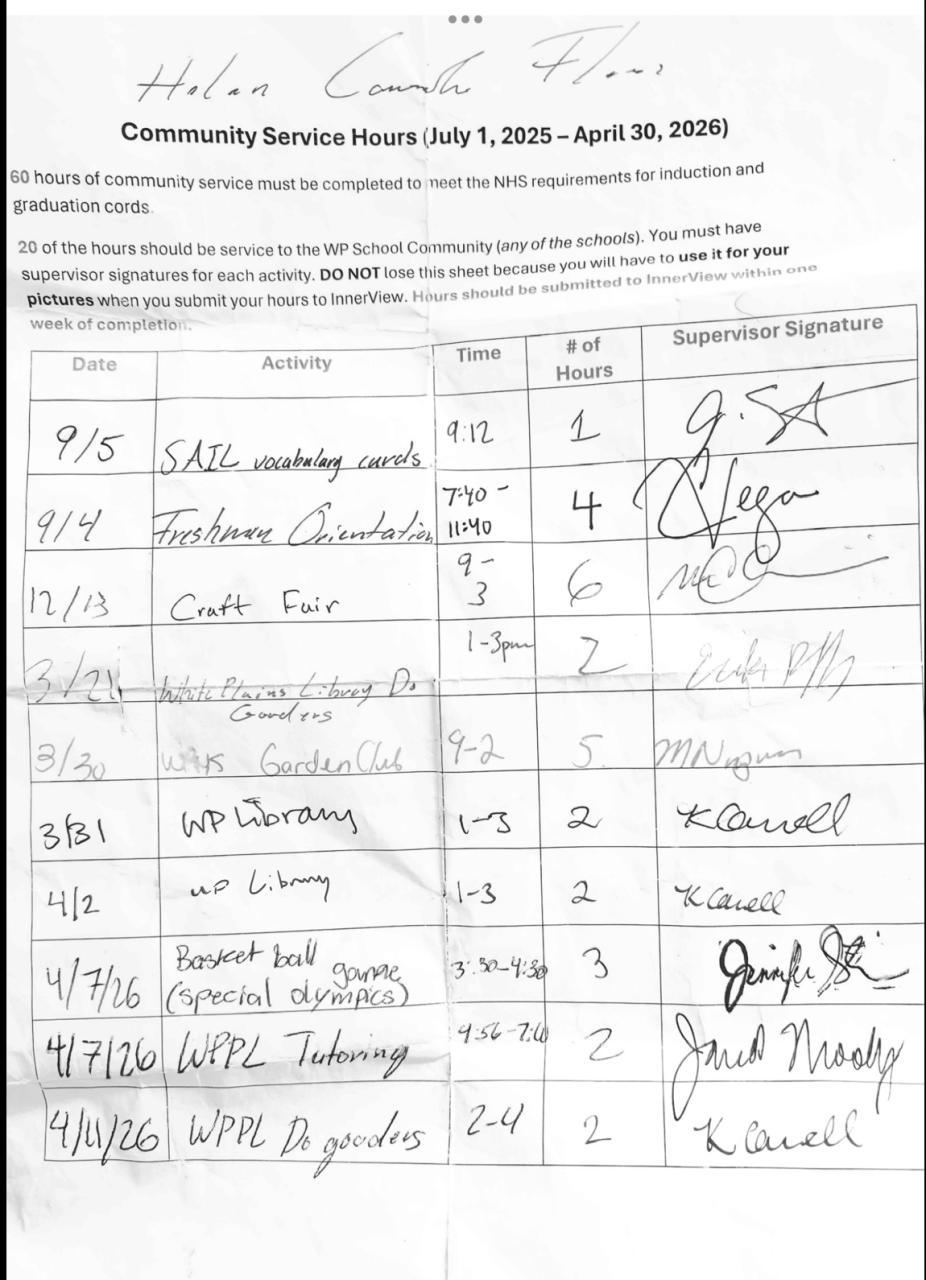 Community Service Hours (July 1, 2025 – April 30, 2026)
60 hours of community service must be completed to meet the NHS requirements for induction and
graduation cords.
20 of the hours should be service to the WP School Community (any of the schools). You must have
supervisor signatures for each activity. DO NOT lose this sheet because you will have to use it for your
pictures when you submit your hours to InnerView. Hours should be submitted to InnerView within one
week of completion.
Date Activity Time # of Hours Supervisor Signature
9/5 SAIL vocabulary cards 9:12 1
9/4 Freshman Orientation 7:40 - 11:40 4
12/13 Craft Fair 9 - 3 6
3/21 White Plains Library Do Gooders 1-3pm 2
3/30 Garden Club 9-2 5
3/31 WP Library 1-3 2 K Carvell
4/2 WP Library 1-3 2 K Carvell
4/7/26 Basket ball game (special olympics) 3:30-4:30 3 Jennifer
4/7/26 WPPL Tutoring 2 Jared Moody
4/11/26 WPPL Do gooders 2-4 2 K Carvell